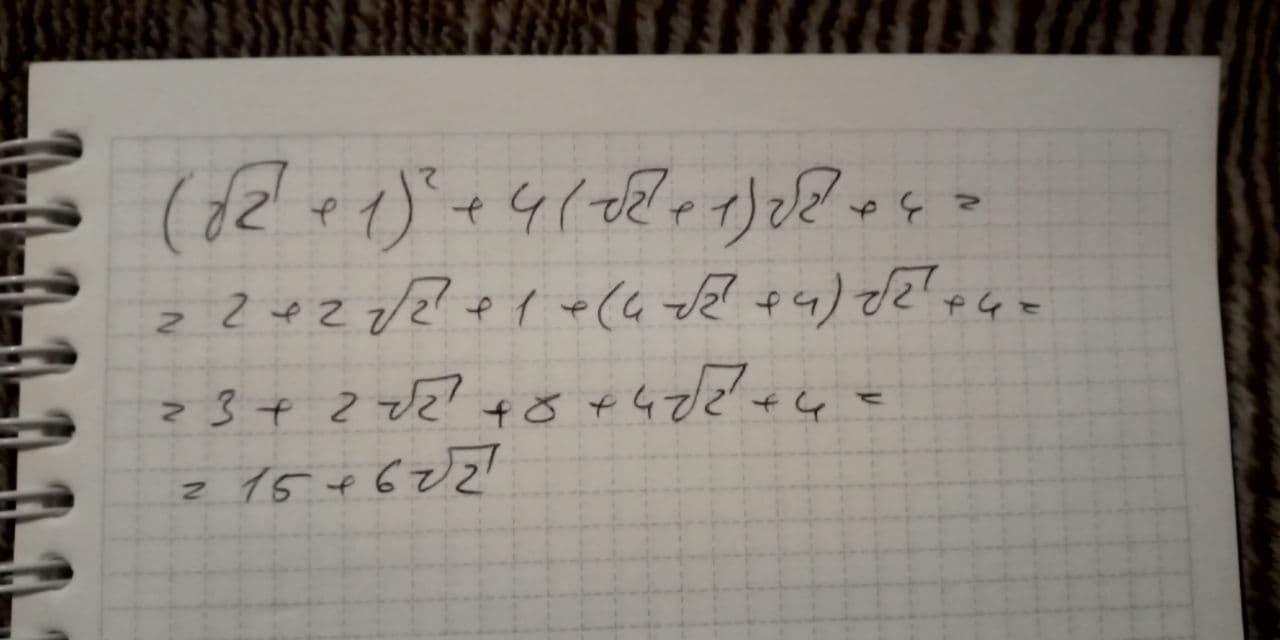 (√2 + 1)² + 4(√2 + 1)√2 + 4 =
= 2 + 2√2 + 1 + (4√2 + 4)√2 + 4 =
= 3 + 2√2 + 8 + 4√2 + 4 =
= 15 + 6√2